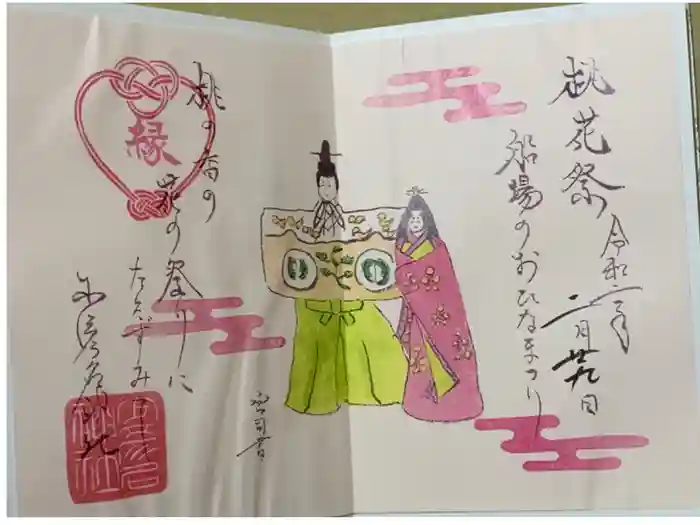 桃花祭
令和二年
二月廿九日
船場のおひなまつり
縁
桃の香の
花の祭りに
少彦名神社
宮司書